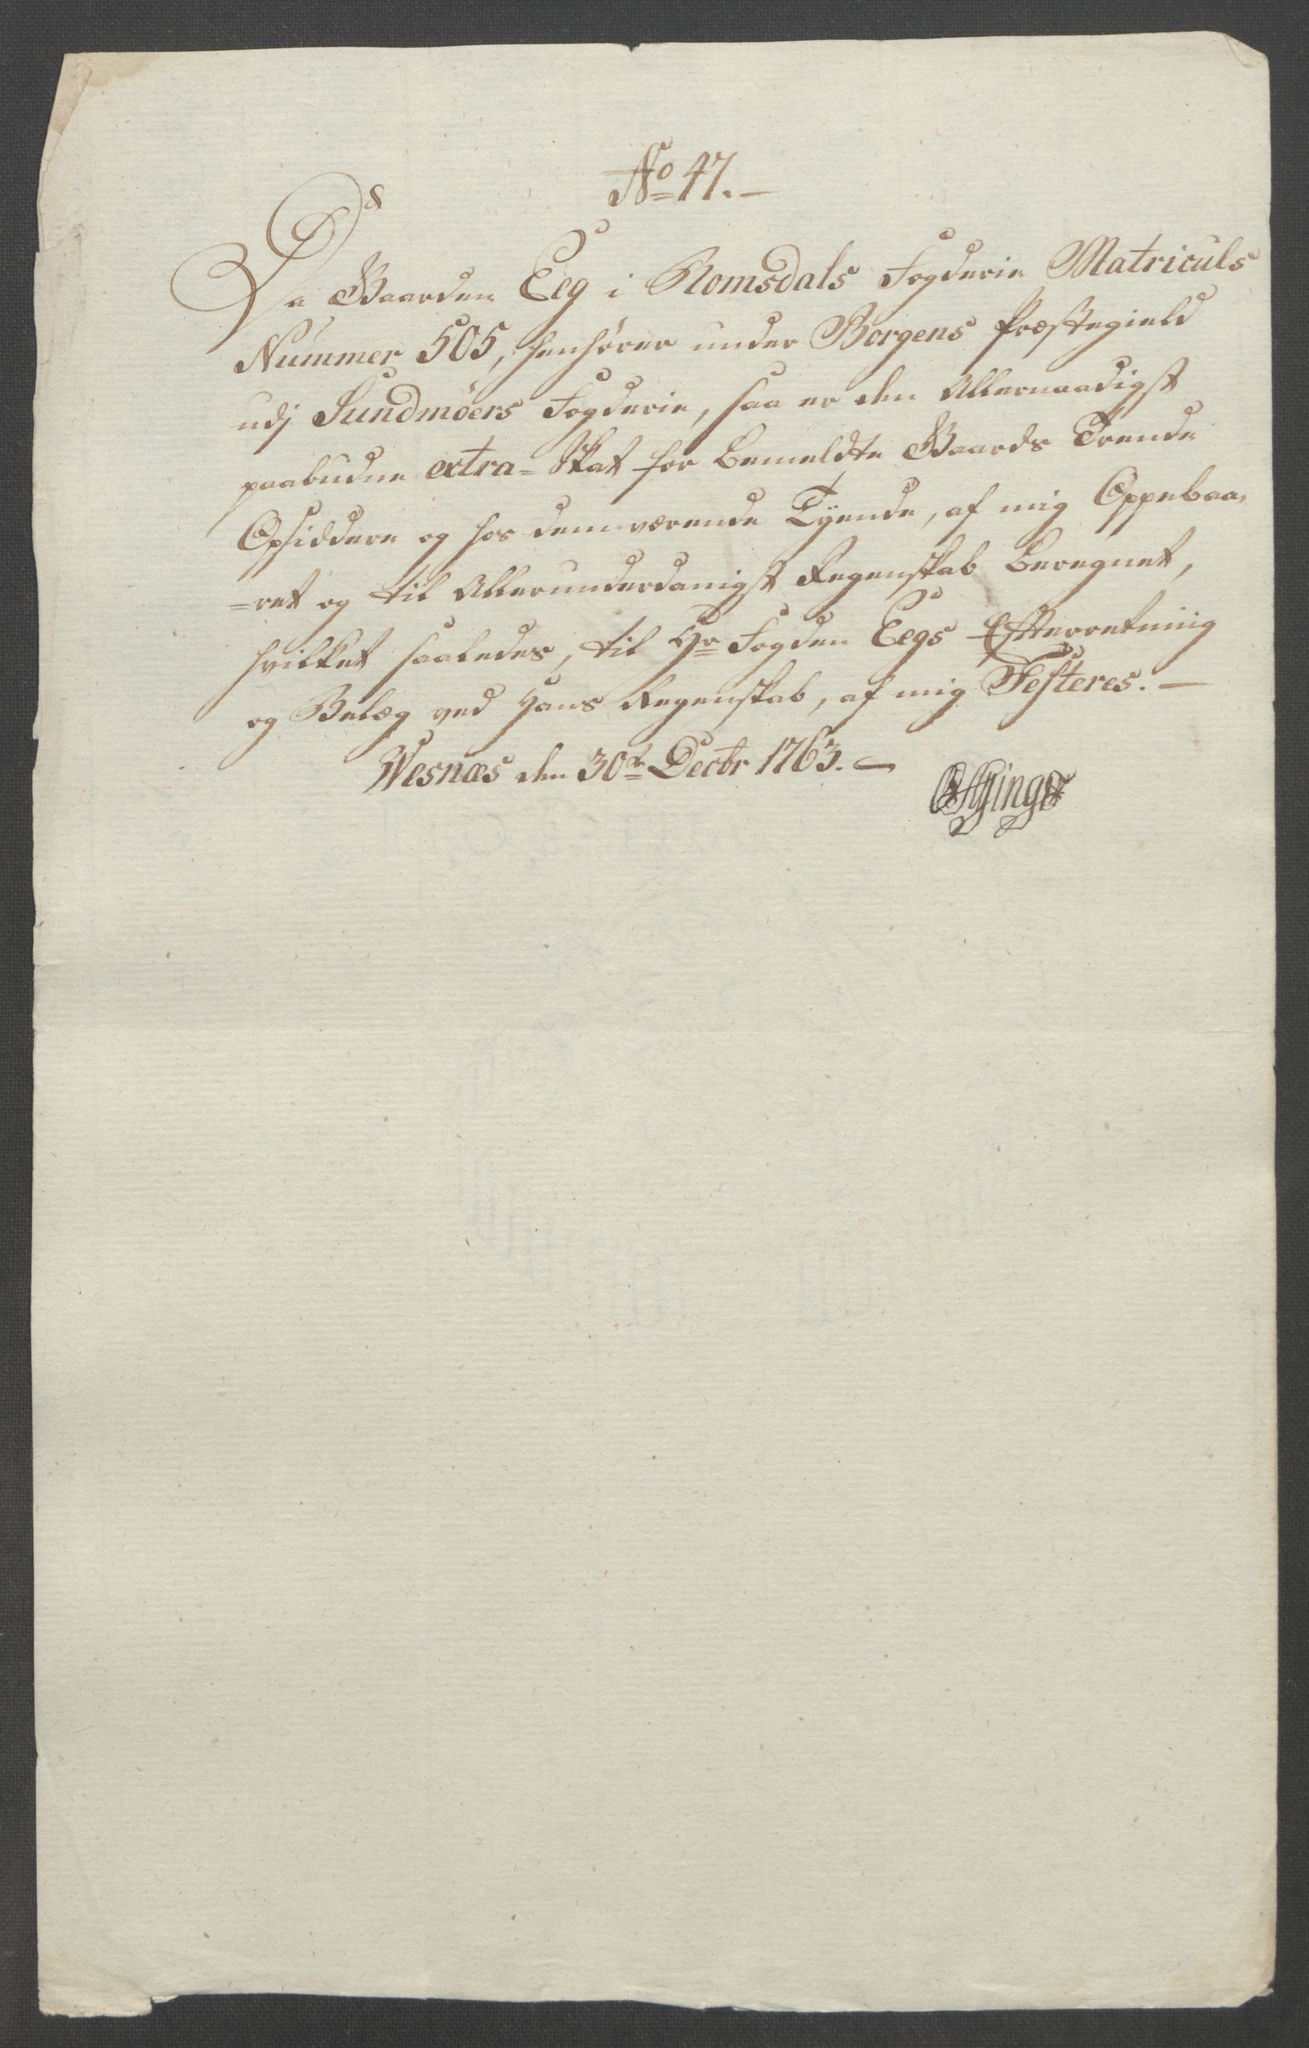 No 47. —
Da Gaarden Eeg i Romsdals Fogderie Matriculs
Nummer 505, henhører under Borgens Præstegield
udj Sundmöers Fogderie, saa er den Allernaadigst
paabudne extra-Skat for bemeldte Gaards Trende
Opsiddere og hos dem værende Tÿende, af mig Oppebaa-
=ret og til Allerunderdanigst Regenskab beregnet,
hvilket saaledes, til Hr Fogden Eegs Efterretning
og Belæg ved Hans Regenskab, af mig Testeres. —
Wesnæs den 30te Decbr 1763. —